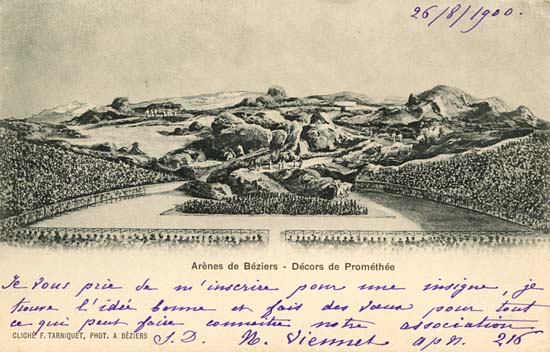 26/8/1900.
Arènes de Béziers - Décors de Prométhée
Je vous prie de m'inscrire pour une insigne, je
trouve l'idée bonne et fais des vœux pour tout
ce qui peut faire connaître notre association
CLICHÉ F. TARNIQUET, PHOT. A BÉZIERS
S.D. N. Viennet apn. 216